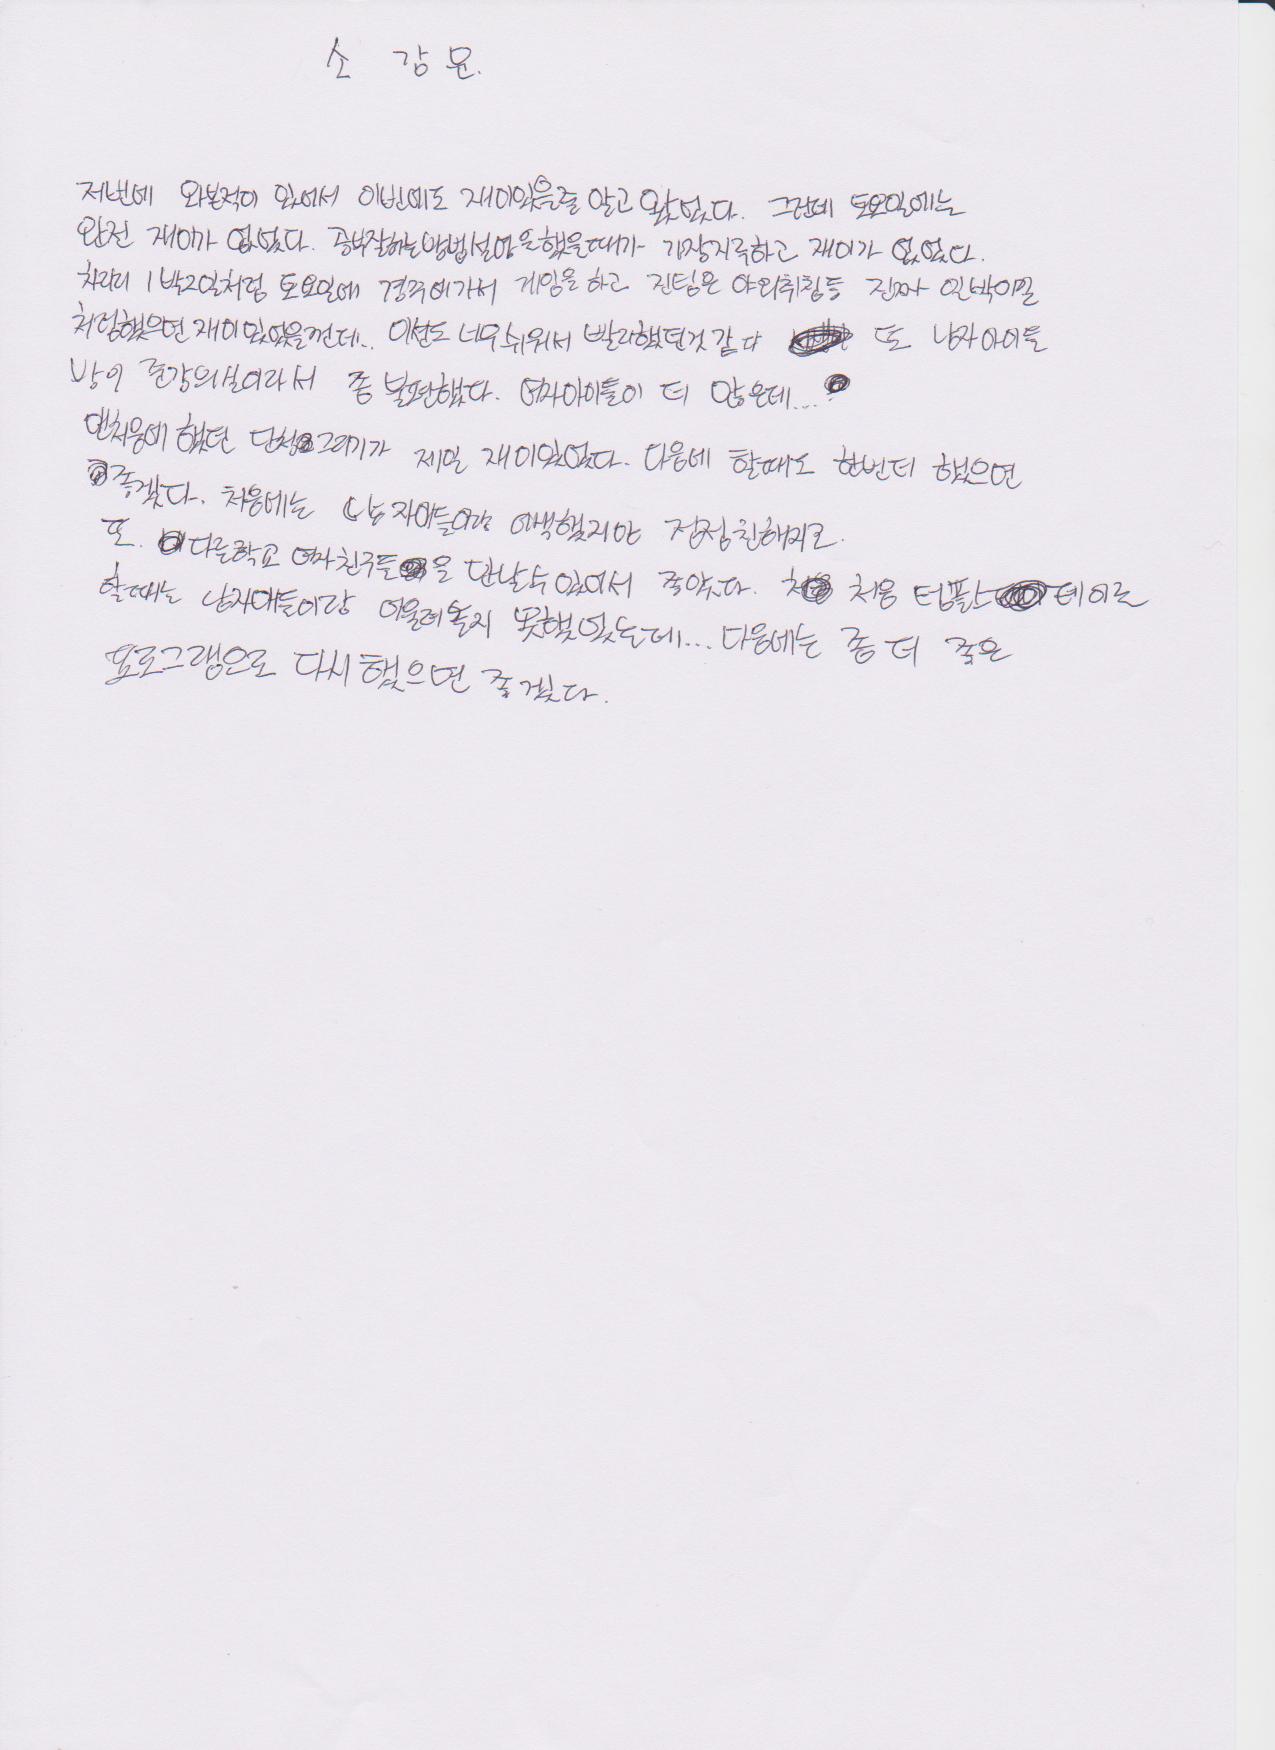 소 감 문.
저번에 와본적이 있어서 이번에도 재미있을줄 알고 왔었다. 그런데 토요일에는
완전 재미가 없었다. 공부잘하는방법설명을했을때가 가장지루하고 재미가 없었다.
차라리 1박2일처럼 토요일에 경주에가서 게임을하고 진팀은 야외취침등 진짜 일박이일
처럼했으면 재미있었을껀데.. 미션도 너무쉬워서 빨리했던것 같다 또 남자아이들
방이 준강의실이라서 좀 불편했다. 여자아이들이 더 많은데...
맨처음에 했던 단청그리기가 제일 재미있었다. 다음에 할때도 한번더 했으면
좋겠다. 처음에는 남자애들이랑 어색했지만 점점친해지고.
또. 다른학교 여자친구들을 만날수있어서 좋았다. 처음 템플스테이를
할때는 남자애들이랑 어울려놀지 못했었는데... 다음에는 좀 더 좋은
프로그램으로 다시했으면 좋겠다.